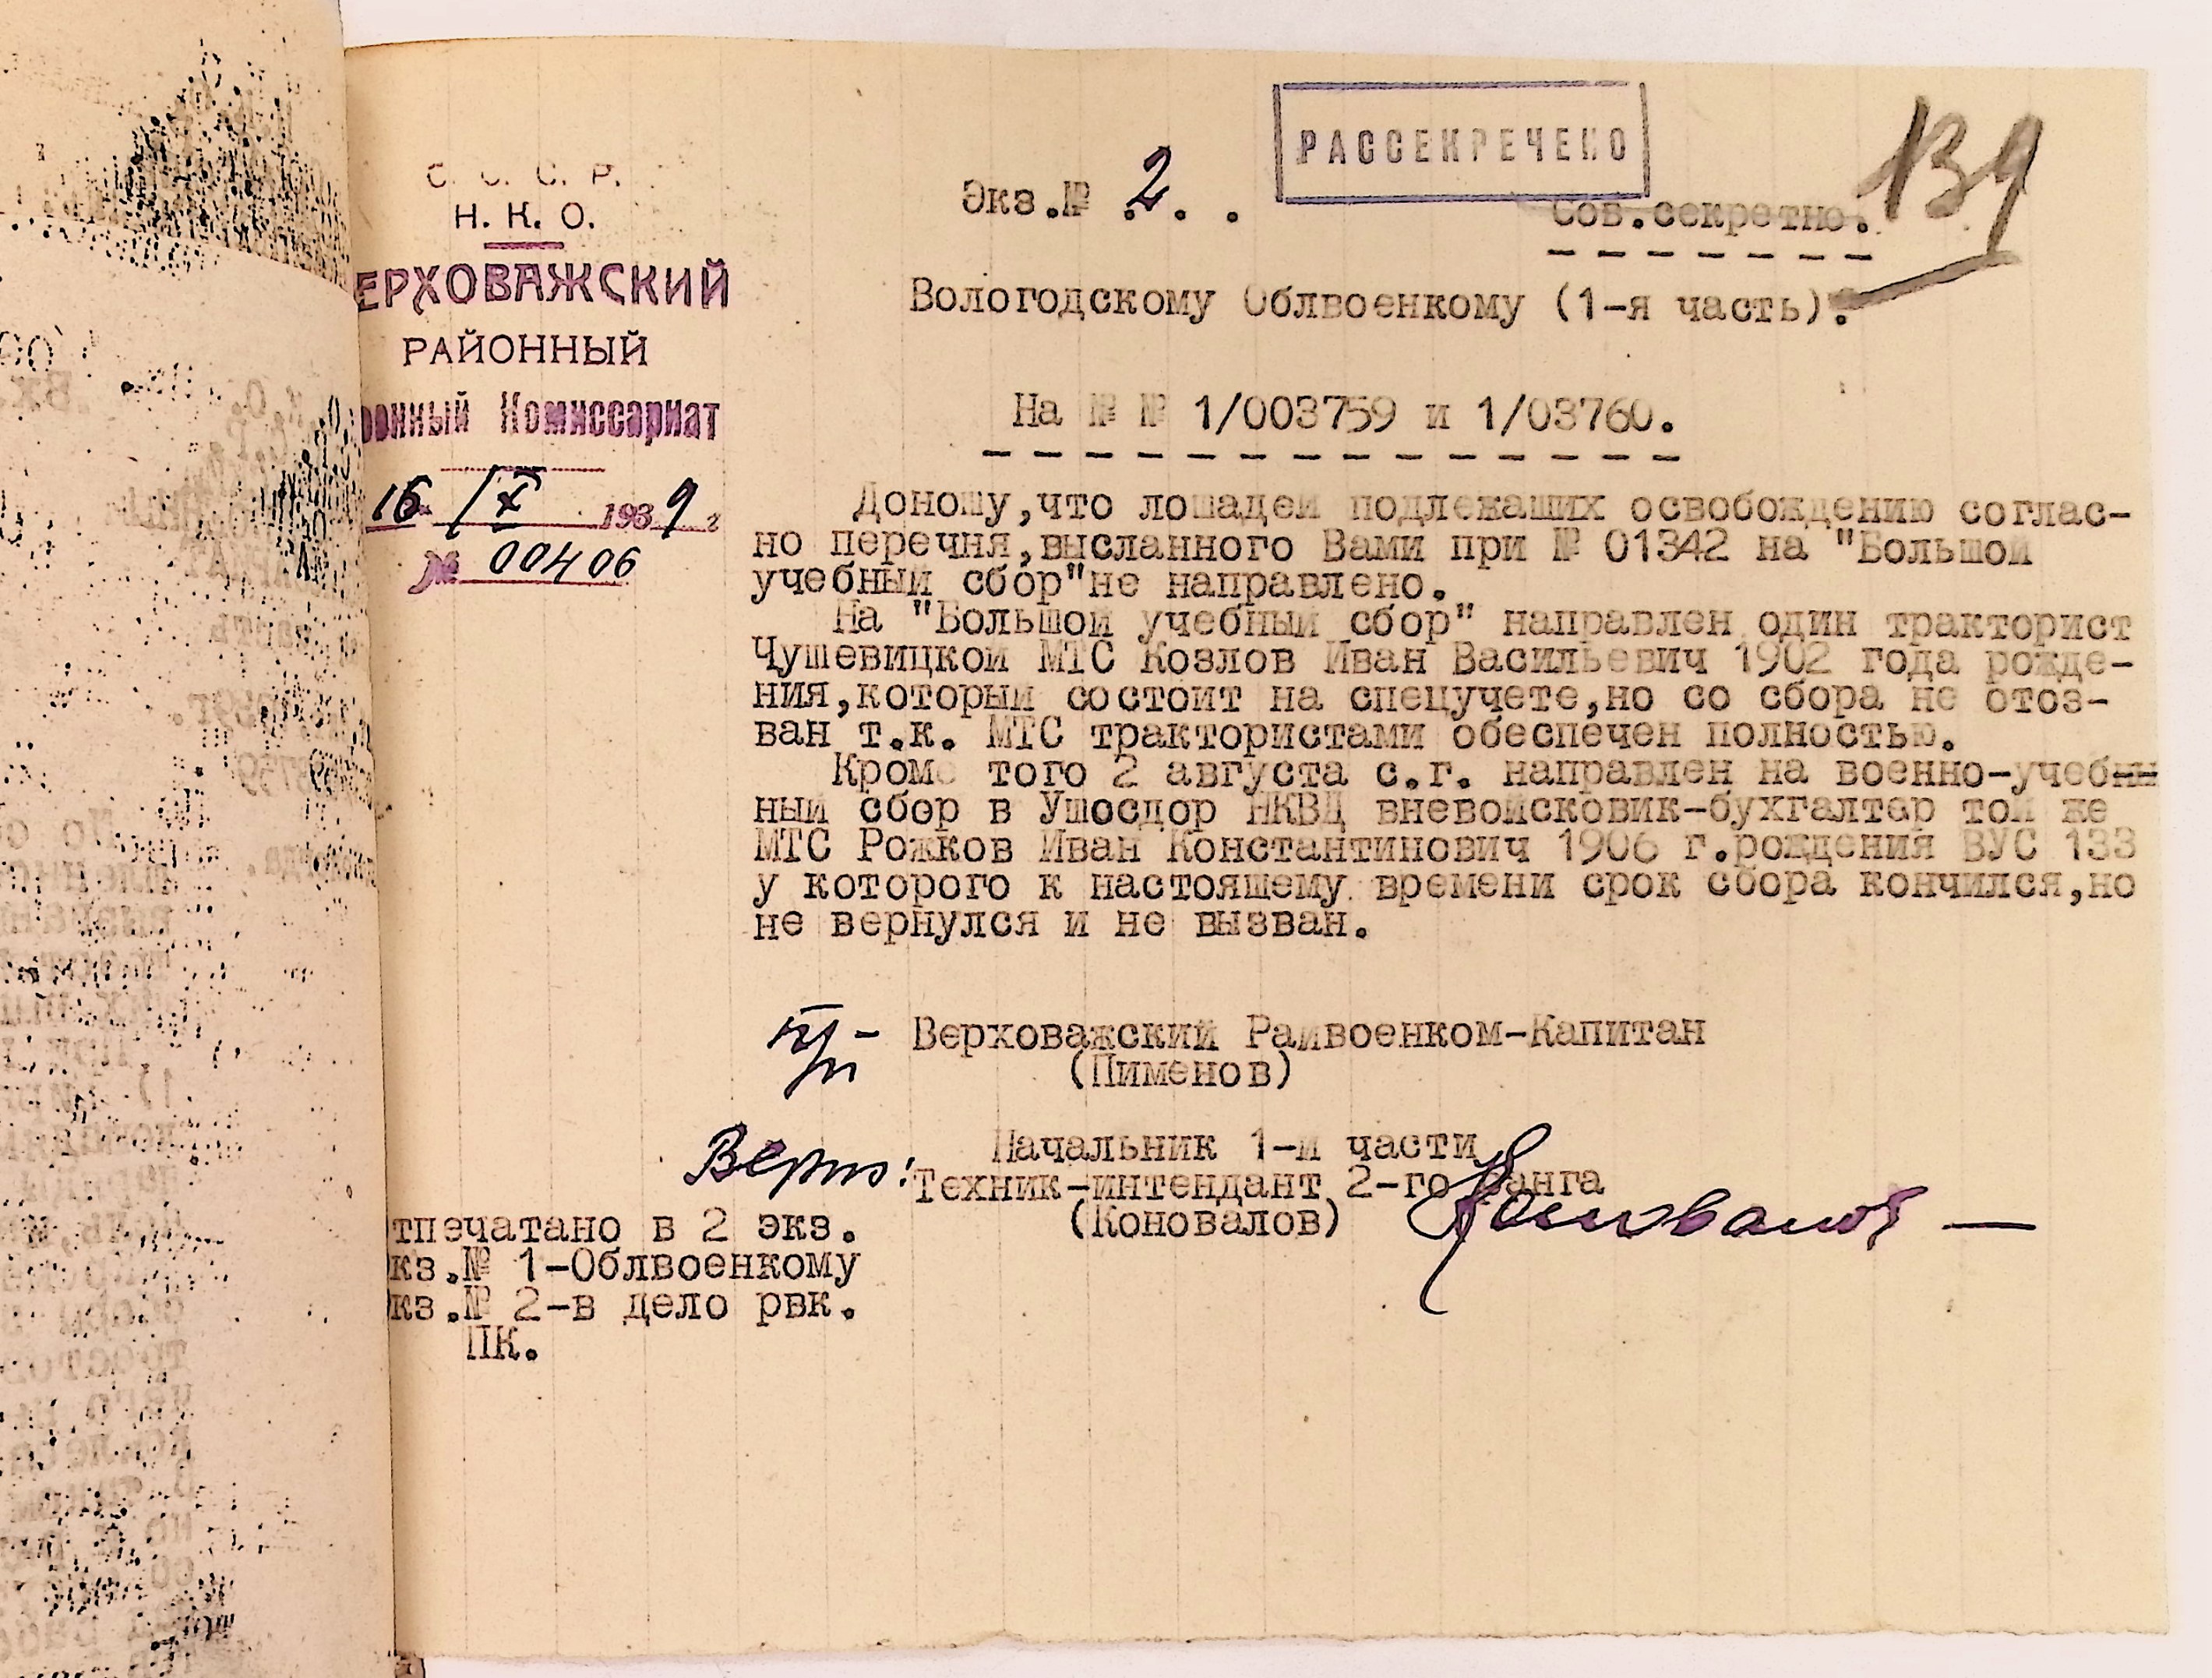 С. С. С. Р.
Н. К. О.
ЕРХОВАЖСКИЙ
РАЙОННЫЙ
оенный Комиссариат
16 IX 1939 г
№ 00406
Экз.№ 2. . .
РАССЕКРЕЧЕНО
Сов.секретно.
139
Вологодскому Облвоенкому (1-я часть).
На № № 1/003759 и 1/03760.
Доношу,что лошадей подлежаших освобождению соглас-
но перечня,высланного Вами при № 01342 на "Большой
учебный сбор"не направлено.
На "Большой учебный сбор" направлен один тракторист
Чушевицкой МТС Козлов Иван Васильевич 1902 года рожде-
ния,который состоит на спецучете,но со сбора не отоз-
ван т.к. МТС трактористами обеспечен полностью.
Кроме того 2 августа с.г. направлен на военно-учебны
ный сбор в Ушосдор НКВД вневойсковик-бухгалтер той же
МТС Рожков Иван Константинович 1906 г.рождения ВУС 133
у которого к настояшему времени срок сбора кончился,но
не вернулся и не вызван.
п/п - Верховажский Райвоенком-Капитан
(Пименов)
Верно: Начальник 1-й части
Техник-интендант 2-го ранга
(Коновалов) Коновалов
тпечатано в 2 экз.
кз.№ 1-Облвоенкому
кз.№ 2-в дело рвк.
ПК.